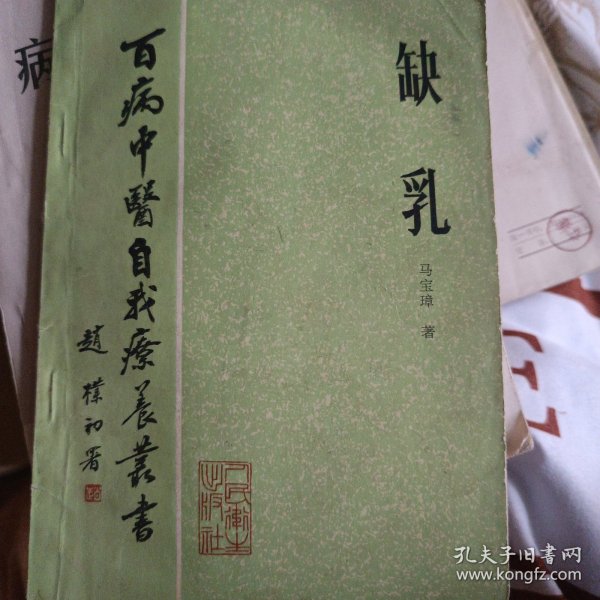 百病中醫自我療养叢書
趙樸初署
缺乳
马宝璋 著
人民衛生出版社
病
孔夫子旧书网
www.kongfz.com